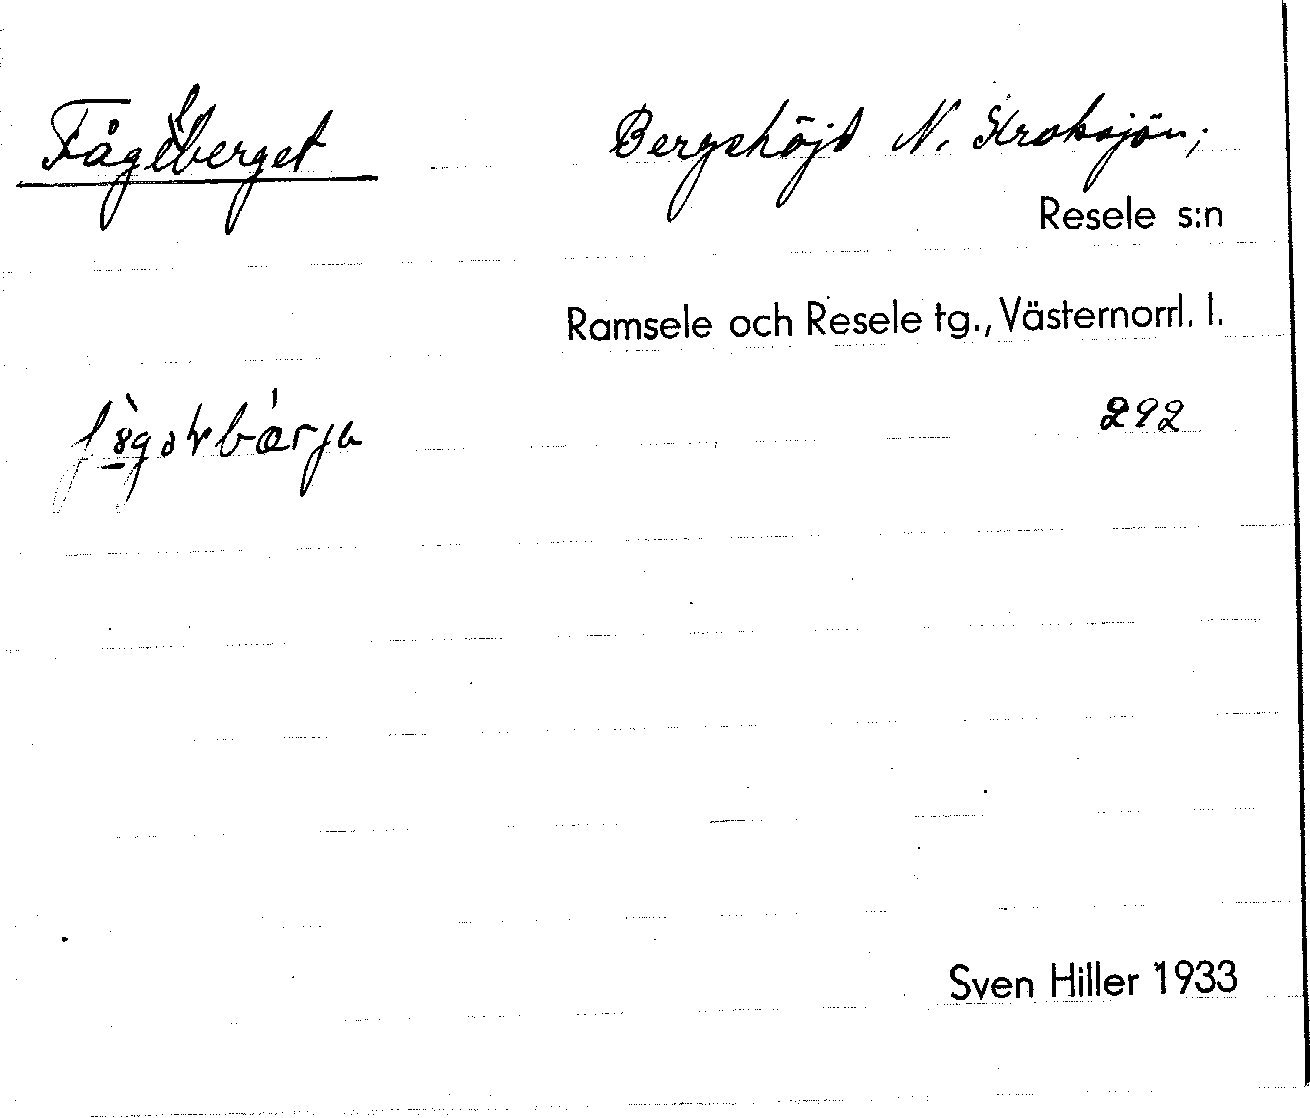 Fågelberget Bergshöjd N. Kroksjön;
Resele s:n
Ramsele och Resele tg., Västernorrl. l.
292
Sven Hiller 1933